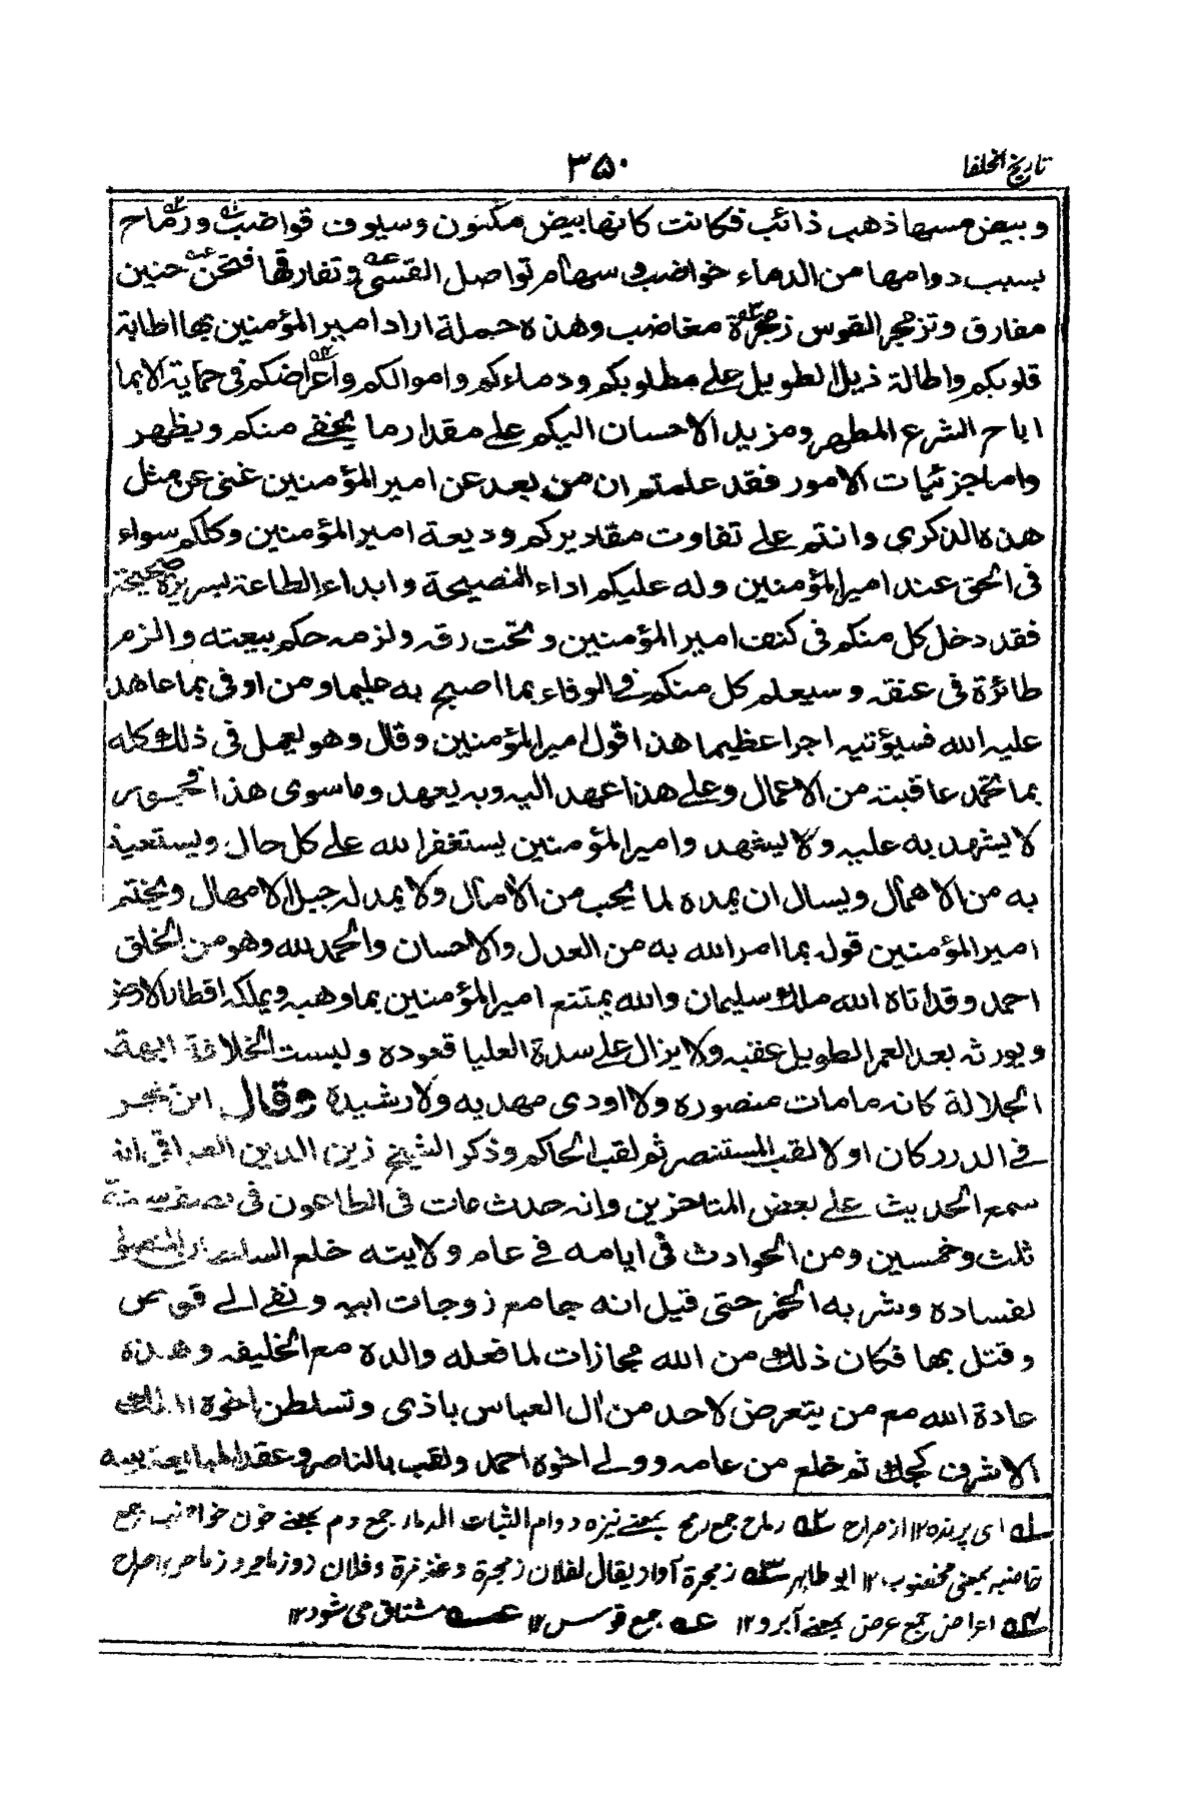 تاريخ الخلفا
۳۵۰
وبيض مسها ذهب ذائب فكانت كانها بيض مكنون وسيوف قواضب ورماح
بسبب دوامها من الدماء خواضب وسهام تواصل القسى وتفارقها فتحن حنين
مفارق وتزمجر القوس زمجرة مغاضب وهذه جملة اراد امير المؤمنين بها اطابة
قلوبكم واطالة ذيل الطويل على مطلوبكم ودماءكم واموالكم واعراضكم فى حماية الا بما
اباح الشرع المطهر ومزيد الاحسان اليكم على مقدار ما يخفى منكم ويظهر
واما جزئيات الامور فقد علمتم ان من بعد عن امير المؤمنين غنى عن مثل
هذه الذكرى وانتم على تفاوت مقاديركم وديعة امير المؤمنين وكلكم سواء
فى الحق عند امير المؤمنين وله عليكم اداء النصيحة وابداء الطاعة بسريرة صحيحة
فقد دخل كل منكم فى كنف امير المؤمنين وتحت رقه ولزمه حكم بيعته والزم
طائرة فى عنقه وسيعلم كل منكم فى الوفاء بما اصبح به عليما ومن اوفى بما عاهد
عليه الله فسيؤتيه اجرا عظيما هذا قول امير المؤمنين وقال وهو يعمل فى ذلك كله
بما تحمد عاقبته من الاعمال وعلى هذا عهد اليه وبه يعهد وما سوى هذا فجور
لا يشهد به عليه ولا يشهد وامير المؤمنين يستغفر الله على كل حال ويستعيذ
به من الاهمال ويسال ان يمده لما يحب من الآمال ولا يمد له حبل الامهال ويختم
امير المؤمنين قوله بما امر الله به من العدل والاحسان والحمد لله وهو من الخلق
احمد وقد اتاه الله ملك سليمان والله يمتع امير المؤمنين بما وهبه ويملكه اقطار الارض
ويورثه بعد العمر الطويل عقبه ولا يزال على سدة العليا قعوده ولبست الخلافة ابهة
الجلالة كانه ما مات منصوره ولا اودى مهديه ولا رشيدة وقال ابن حجر
فى الدرر كان اولا لقب المستنصر ثم لقب الحاكم وذكر الشيخ زين الدين العراقى انه
سمع الحديث على بعض المتاخرين وانه حدث مات فى الطاعون فى نصف سنة
ثلث وخمسين ومن الحوادث فى ايامه فى عام ولايته خلع السلطان المنصور
لفساده وشربه الخمر حتى قيل انه جامع زوجات ابيه ونفى الى قوص
وقتل بها فكان ذلك من الله مجازات لما فعله والده مع الخليفه وهذه
عادة الله مع من يتعرض لاحد من ال العباس باذى وتسلطن اخوه الملك
الاشرف كجك ثم خلع من عامه وولى اخوه احمد ولقب بالناصر وعقد المبايعة بينه
له اى پرنده ۱۲ از صراح ٢ه رماح جمع رمح بمعنے نيزه دوام الثبات الدماء جمع دم بمعنے خون خواضب جمع
خاضبه بمعنى مخضوب ۱۲ ابو طاهر ٣ه زمجرة آواز يقال لفلان زمجرة وغذمرة وفلان ذو زماجر وزماجير ۱۲ صراح
٤ه اعراض جمع عرض بمعنے آبرو ۱۲ عه جمع قوس ۱۲ عسه مشتاق مى شود ۱۲